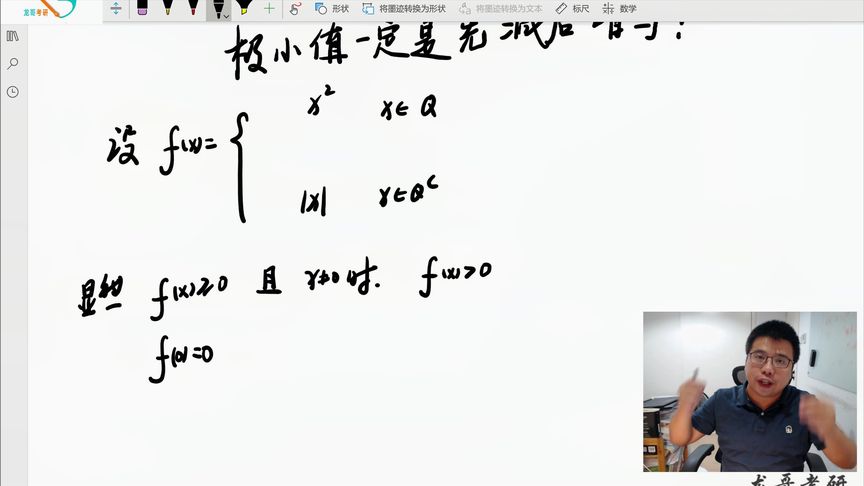 龙哥考研
形状 将墨迹转换为形状 将墨迹转换为文本 标尺 数学
极小值一定是先减后增吗?
x² x∈Q
设 f(x)={
|x| x∈Q^c
显然 f(x)≥0 且 x≠0时. f(x)>0
f(0)=0
龙哥考研